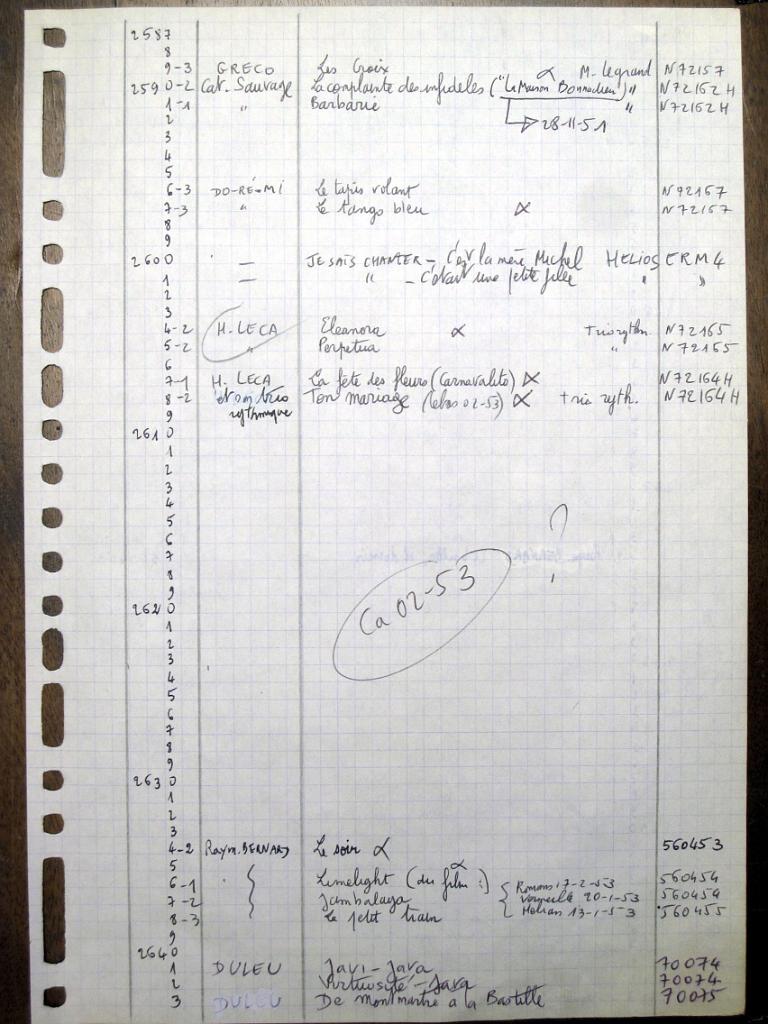 2587
8
9-3 GRECO Les Croix N72157
2590-2 Cat. Sauvage La complainte des infidèles ("La Maison Bonnadieu") α M. Legrand N72162H
1-1 " Barbarie " N72162H
2 → 28-11-51
3
4
5
6-3 DO-RÉ-MI Le tapis volant N72167
7-3 " Le tango bleu α N72167
8
9
2600 — JE SAIS CHANTER - C'est la mère Michel HELIOS ERM4
1 — " - C'était une petite fille " "
2
3
4-2 H. LECA Eleanora α + trio rythm. N72165
5-2 " Perpetua " N72165
6
7-1 H. LECA La fête des fleurs (Carnavalito) α N72164H
8-2 et son trio Ton mariage 02-53) α + trio ryth. N72164H
9 rythmique
2610
1
2
3
4
5
6
7
8
9
2620
1
2
3
4
5
6
7
8
9
Ca 02-53 ?
2630
1
2
3
4-2 Raym. BERNARD Le soir α 560453
5
6-1 Limelight (du film :) α 17-2-53 560454
7-2 Jambalaya 20-1-53 560454
8-3 Le petit train Hélian 13-1-53 560455
9
2640
1 DULEU Javi-Java 70074
2 Virtuosité-Java 70074
3 DULEU De Montmartre à la Bastille 70075